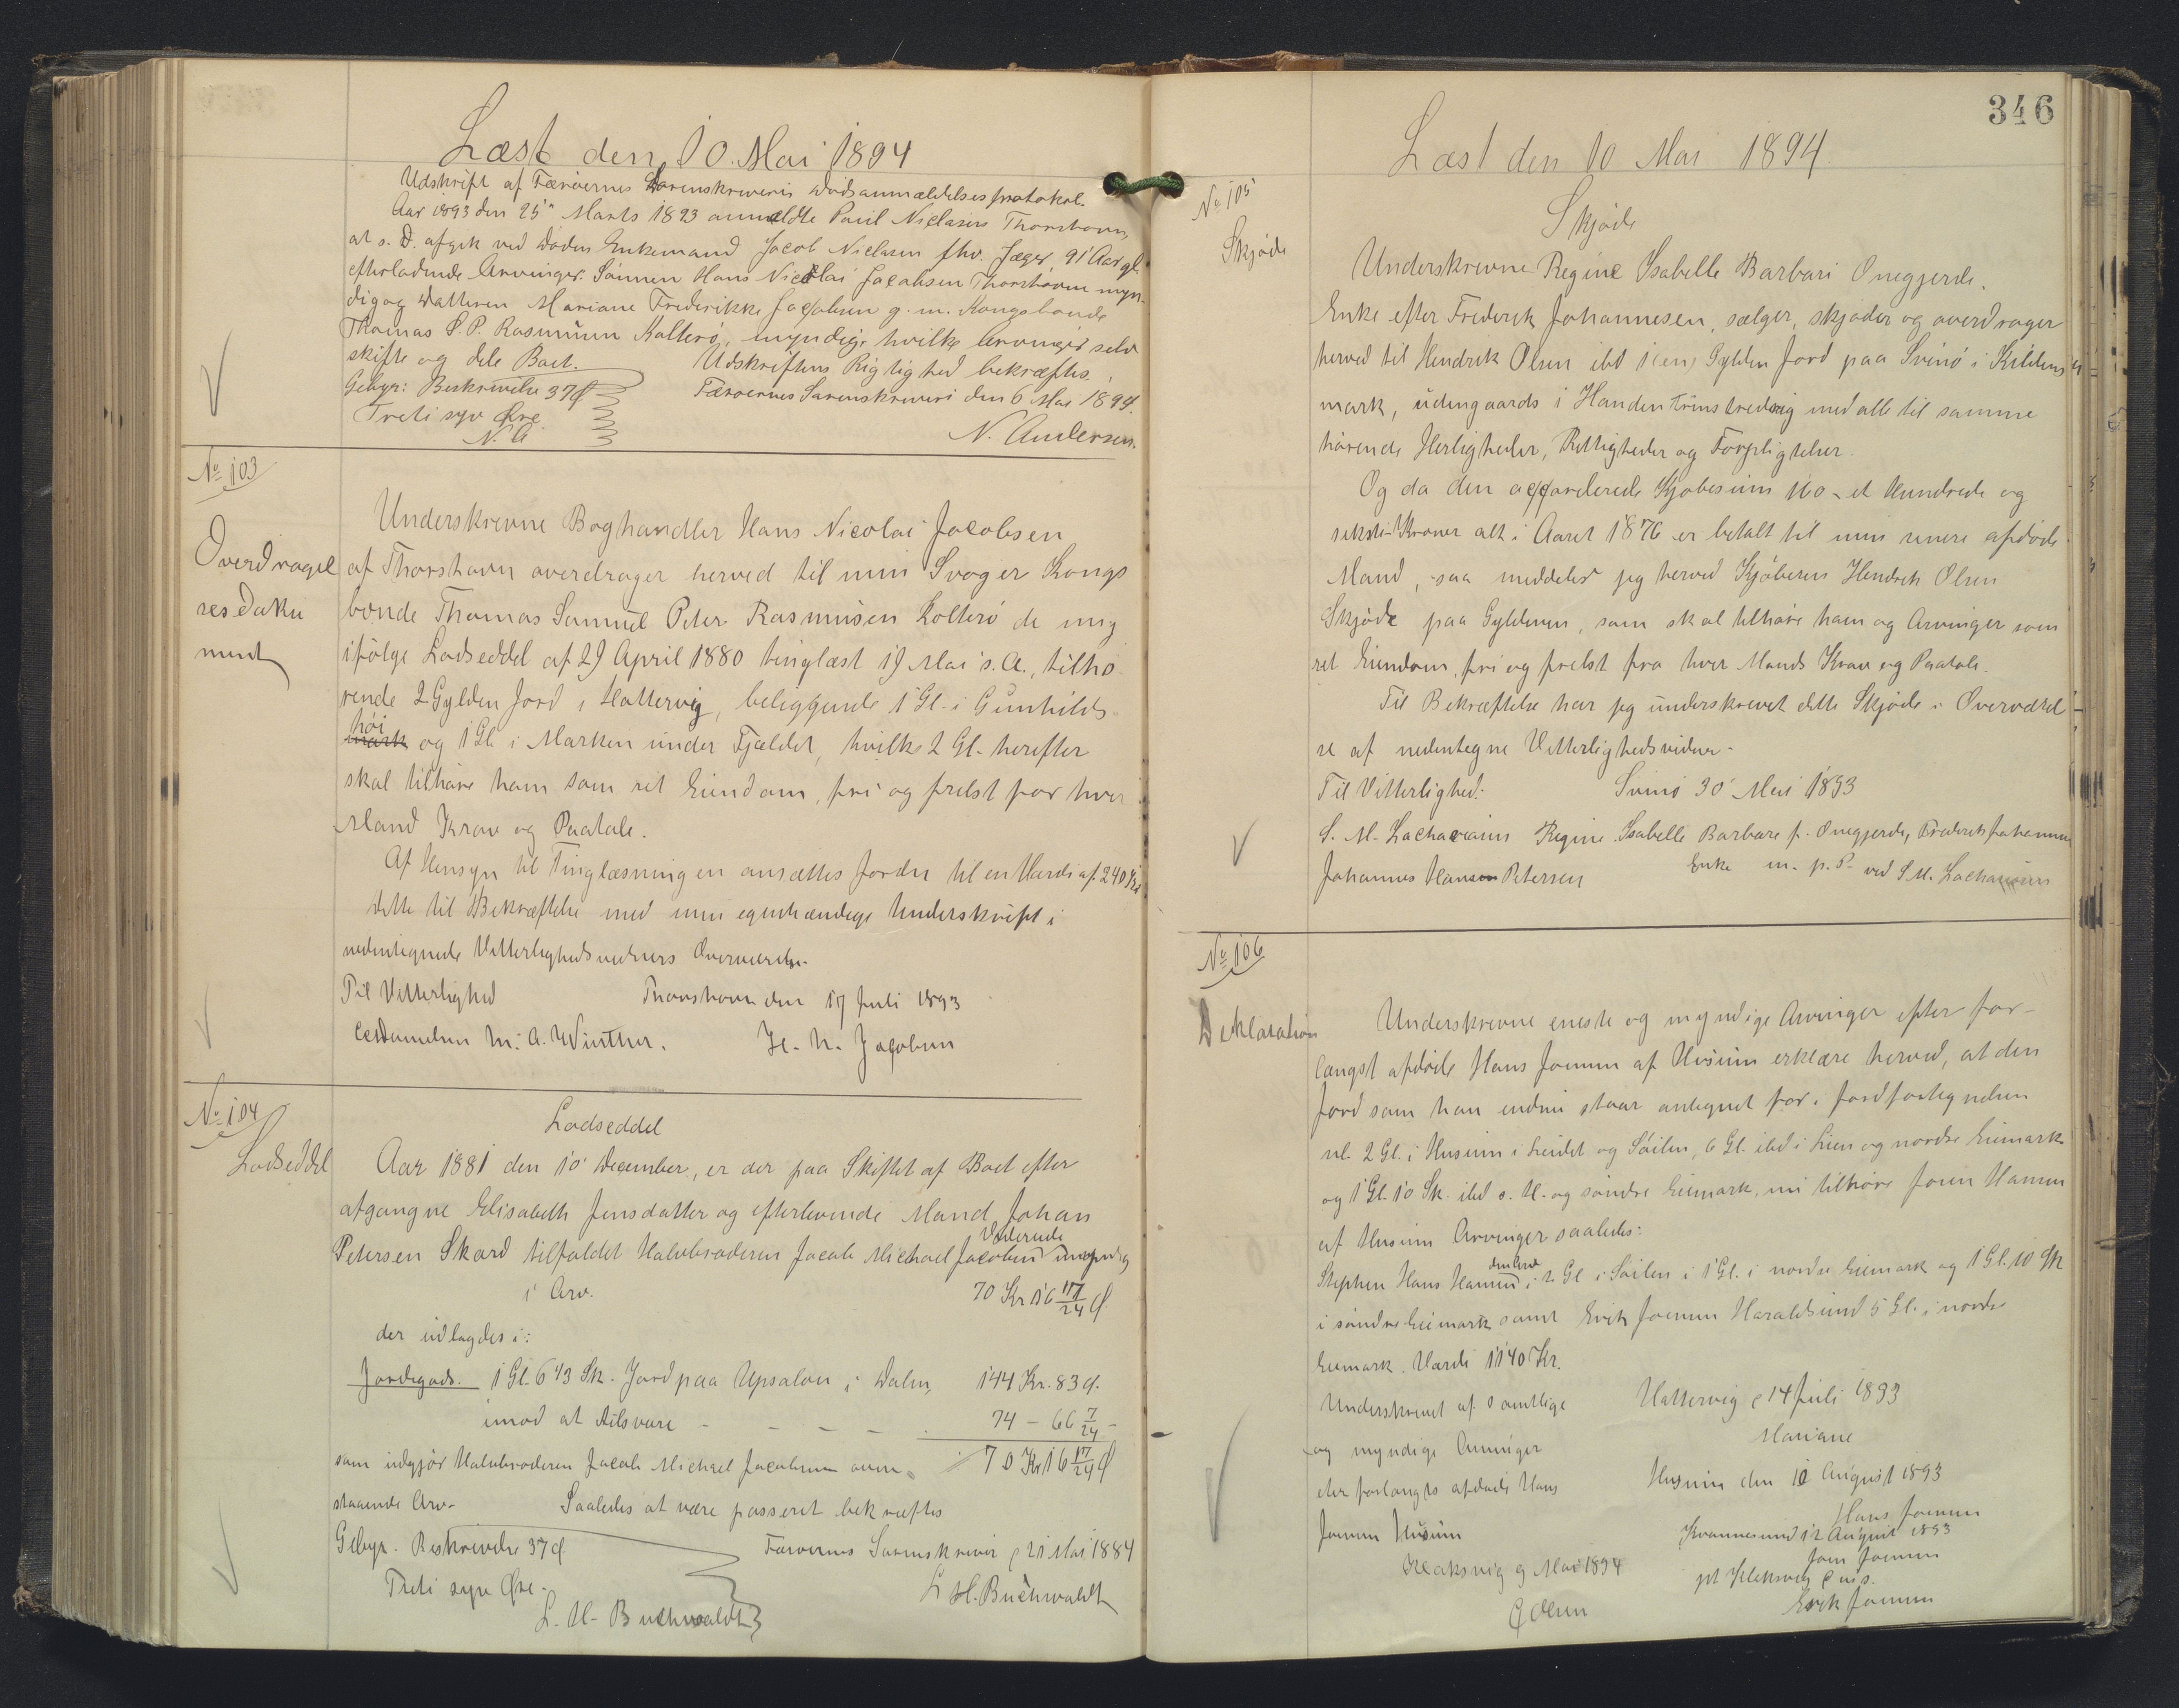 Læst den 10. Mai 1894
Udskrift af Færøernes Sorenskriveris Dødsanmældelsesprotokol.
Aar 1893 den 25" Marts 1893 anmeldte Poul Niclasen Thorshavn,
at s. D. afgik ved Døden Enkemand Jacob Nielsen fhv. Jæger 91 Aar gl.
efterladende Arvinger: Sønnen Hans Nicolai Jacobsen Thorshavn myn-
dig og Datteren Mariane Frederikke Jacobsen g. m. Kongsbonde
Thomas S. P. Rasmusen Kolterø, myndig, hvilke Arvinger selv
skifte og dele Boet. Udskriftens Rigtighed bekræftes.
Gebyr: Beskrivelse 37 Ø Færøernes Sorenskriveri den 6 Mai 1894.
Treti syv Øre
N. A N. Andersen.
No 103
Overdragel
ses Doku
ment
Underskrevne Boghandler Hans Nicolai Jacobsen
af Thorshavn overdrager herved til min Svoger Kongs
bonde Thomas Samuel Peter Rasmusen Kolterø de mig
ifølge Lodseddel af 29 April 1880 tinglæst 19 Mai s. A., tilhø
rende 2 Gylden Jord i Hattervig, beliggende 1 Gl. i Gunhilds
høi
mark og 1 Gl. i Marken under Fjeldet, hvilke 2 Gl. herefter
skal tilhøre ham som ret Eiendom, fri og frelst for hver
Mand Krav og Paatale.
Af Hensyn til Tinglæsningen ansættes Jorden til en Værdi af 240 Kr
dette til Bekræftelse med min egenhændige Underskrift i
nedentegnede Vitterlighedsvidners Overværelse.
Til Vitterlighed Thorshavn den 17 Juli 1893
M. A. Winther. H. N. Jacobsen
No 104
Lodseddel
Lodseddel
Aar 1881 den 10 December, er der paa Skiftet af Boet efter
afgangne Elisabeth Jensdatter og efterlevende Mand Johan
Petersen Skard tilfaldet Halvbroderen Jacob Michael Jacobsen umyndig
i Arv. 70 Kr 16 17/24 Ø.
der udlagdes i:
Jordegods. 1 Gl. 6 4/3 Sk. Jord paa Upsalen i Dalen, 144 Kr. 83 Ø.
imod at tilsvare - - - - 74 - 66 7/24 -
som udgjør Halvbroderen Jacob Michael Jacobsen oven- 70 Kr 16 17/24 Ø
staaende Arv. Saaledes at være passeret bekræftes
Gebyr. Beskrivelse 37 Ø Færøernes Sorenskriveri 21 Mai 1884
Treti syv Øre. L H. Buchwaldt
L. H. Buchwaldt
346
Læst den 10 Mai 1894.
No 105
Skjøde
Skjøde
Underskrevne Regine Isabelle Barbari Onegjerde.
Enke efter Frederik Johannesen, sælger, skjøder og overdrager
herved til Hendrik Olsen ibd 1 (en) Gylden Jord paa Svinø i Kildens
mark, udengaards i Handen med alle til samme
hørende Herligheder, Rettigheder og Forpligtelser.
Og da den accorderede Kjøbesum 160 - et Hundrede og
seksti Kroner alt i Aaret 1876 er betalt til min senere afdøde
Mand, saa meddeler jeg herved Kjøberen Hendrik Olsen
Skjøde paa Gyldenen, som skal tilhøre ham og Arvinger som
ret Eiendom, fri og frelst fra hver Mands Krav og Paatale.
Til Bekræftelse har jeg underskrevet dette Skjøde i Overværel
se af nedentegne Vitterlighedsvidner.
Til Vitterlighed: Svinø 30 Mai 1893
S. M. Zachariasen Regine Isabelle Barbare f. Onegjerde, Frederik Johannesen
Johannes Hanson Petersen Enke m. p. P. ved S M. Zachariasen
No 106
Deklaration
Underskrevne eneste og myndige Arvinger efter for-
længst afdøde Hans Joensen af Husum erklære herved, at den
Jord som han endnu staar antegnet for i Jordfortegnelsen
nl. 2 Gl. i Husum i Leidet og Søilen, 6 Gl. ibd i Lien og nordre Eiemark
og 1 Gl. 10 Sk. ibd s. H. og søndre Eiemark, nu tilhøre Joen Hansen
af Husum Arvinger saaledes:
Stephen Hans Hansen i 2 Gl i Søilen i 1 Gl. i nordre Eiemark og 1 Gl. 10 Sk
i søndre Eiemark samt Erik Joensen Haraldsund 5 Gl. i nordre
Eiemark. Værdi 1140 Kr.
Underskrevet af samtlige Hattervig 14 Juli 1893
og myndige Arvinger Mariane
efter forlængts afdøde Hans Husum den 10 August 1893
Joensen Husum Hans Joensen
Kvannesund 12 August 1893
Klaksvig 9 Mai 1894 Joen Joensen
pt Klaksvig
Olsen Erik Joensen